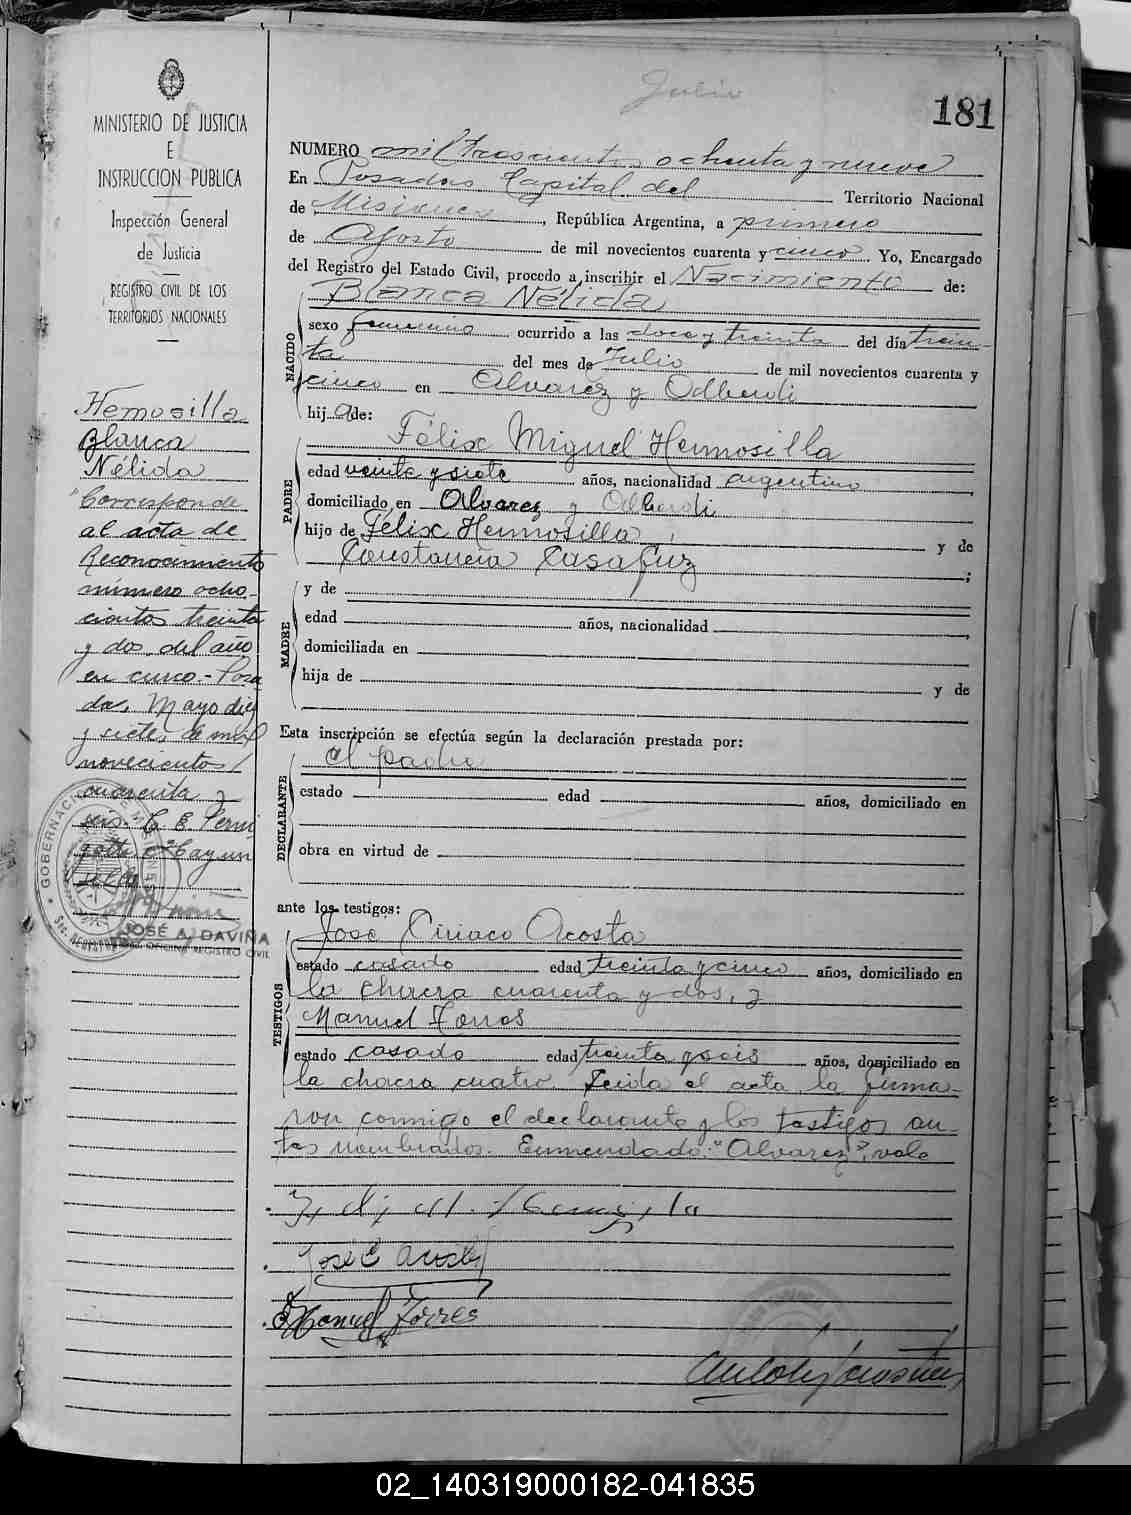 Julio
181
MINISTERIO DE JUSTICIA
E
INSTRUCCION PUBLICA
Inspección General
de Justicia
REGISTRO CIVIL DE LOS
TERRITORIOS NACIONALES
NUMERO mil trescientos ochenta y nueve
En Posadas Capital del Territorio Nacional
de Misiones, República Argentina, a primero
de Agosto de mil novecientos cuarenta y cinco Yo, Encargado
del Registro del Estado Civil, procedo a inscribir el Nacimiento de:
NACIDO
Blanca Nélida
sexo femenino ocurrido a las doce y treinta del día trein-
ta del mes de Julio de mil novecientos cuarenta y
cinco en Alvarez y Odberdi
hija de:
PADRE
Félix Miguel Hermosilla
edad veinte y siete años, nacionalidad argentino,
domiciliado en Alvarez y Odberdi
hijo de Félix Hermosilla y de
Constancia Casafuz;
MADRE
y de
edad años, nacionalidad,
domiciliada en
hija de y de
Esta inscripción se efectúa según la declaración prestada por:
DECLARANTE
el padre
estado edad años, domiciliado en
obra en virtud de
ante los testigos:
TESTIGOS
José Ciriaco Acosta
estado casado edad treinta y cinco años, domiciliado en
la chacra cuarenta y dos, y
Manuel Torres
estado casado edad treinta y seis años, domiciliado en
la chacra cuatro. Leida el acta, la firma-
ron conmigo el declarante y los testigos an-
tes nombrados. Enmendado: "Alvarez", vale
José C Acosta
Manuel Torres
Hemosilla
Blanca
Nélida
"Corresponde
al acta de
Reconocimiento
número ocho-
cientos treinta
y dos del año
en curso.- Posa
das, Mayo diez
y siete, de mil
novecientos
cuarenta y
seis.
JOSÉ A. DAVIÑA
OFICINA REGISTRO CIVIL
GOBERNACION DE MISIONES
02_140319000182-041835